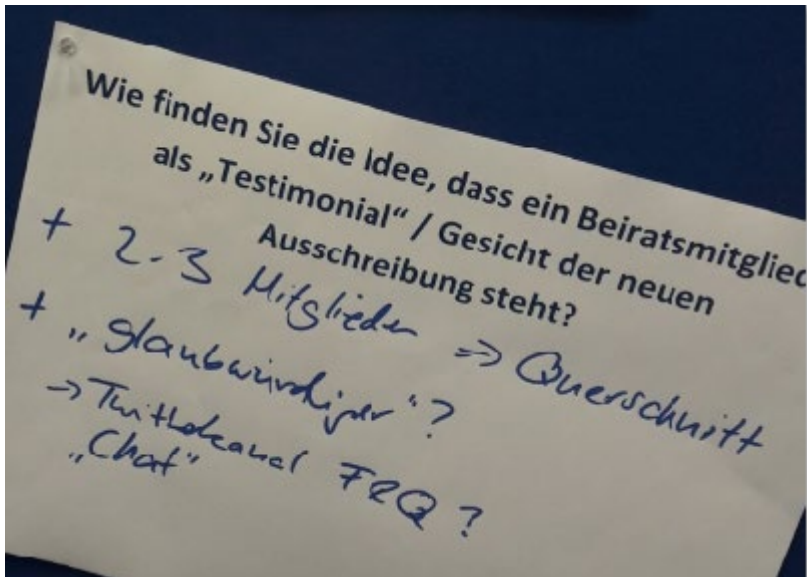 Wie finden Sie die Idee, dass ein Beiratsmitglied
als „Testimonial“ / Gesicht der neuen
Ausschreibung steht?
+ 2-3 Mitglieder => Querschnitt
+ „glaubwürdiger“?
-> FRQ?
„Chat“